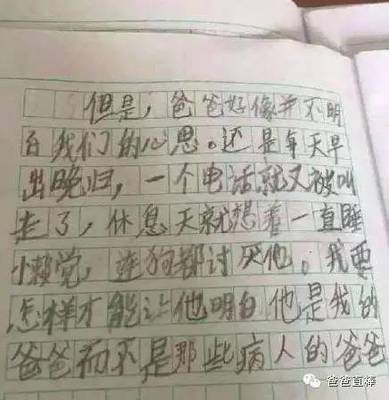 但是，爸爸好像并不明
白我们的心思。还是每天早
出晚归，一个电话就又被叫
走了，休息天就想着一直睡
懒觉，连狗都讨厌他。我要
怎样才能让他明白他是我的
爸爸而不是那些病人的爸爸
爸爸真棒